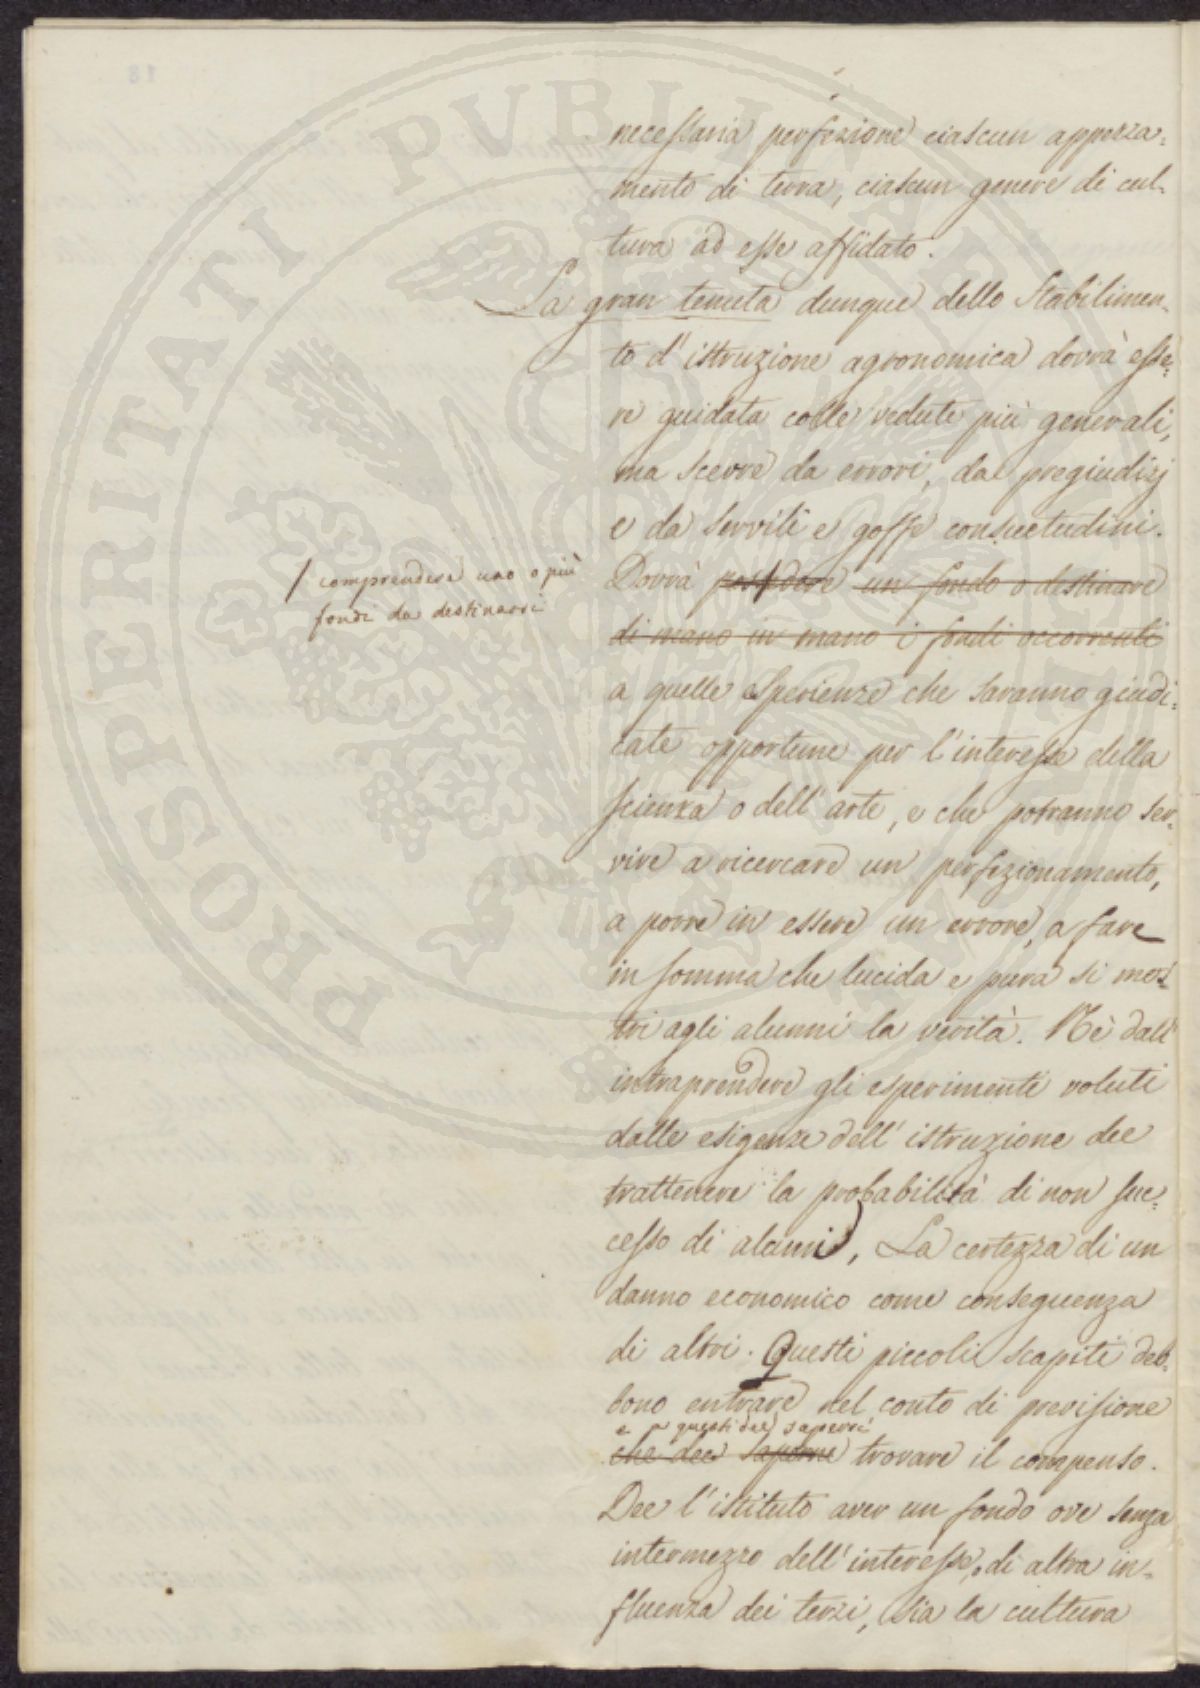 necessaria perfezione ciascun appezza=
mento di terra, ciascun genere di cul=
tura ad esse affidato.
La gran tenuta dunque dello Stabilimen=
to d'istruzione agronomica dovrà esse=
re guidata colle vedute più generali,
ma scevre da errori, da pregiudizj
e da servili e goffe consuetudini.
/ comprendere uno o più
fondi da destinarsi
Dovrà possedere un fondo o destinare
di mano in mano i fondi occorrenti
a quelle esperienze che saranno giudi=
cate opportune per l'interesse della
scienza o dell'arte, e che potranno ser=
vire a ricercare un perfezionamento,
a porre in essere un errore, a fare
in somma che lucida e pura si mos=
tri agli alunni la verità. Nè dall'
intraprendere gli esperimenti voluti
dalle esigenze dell'istruzione dee
trattenere la probabilità di non suc=
cesso di alcuni, La certezza di un
danno economico come conseguenza
di altri. Questi piccoli scapiti deb=
bono entrare nel conto di previsione
e a questi dee sapersi
che dee saperne trovare il compenso.
Dee l'istituto aver un fondo ove senza
intermezzo dell'interesse, o di altra in=
fluenza dei terzi, sia la cultura
PROSPERITATI PVBLICAE